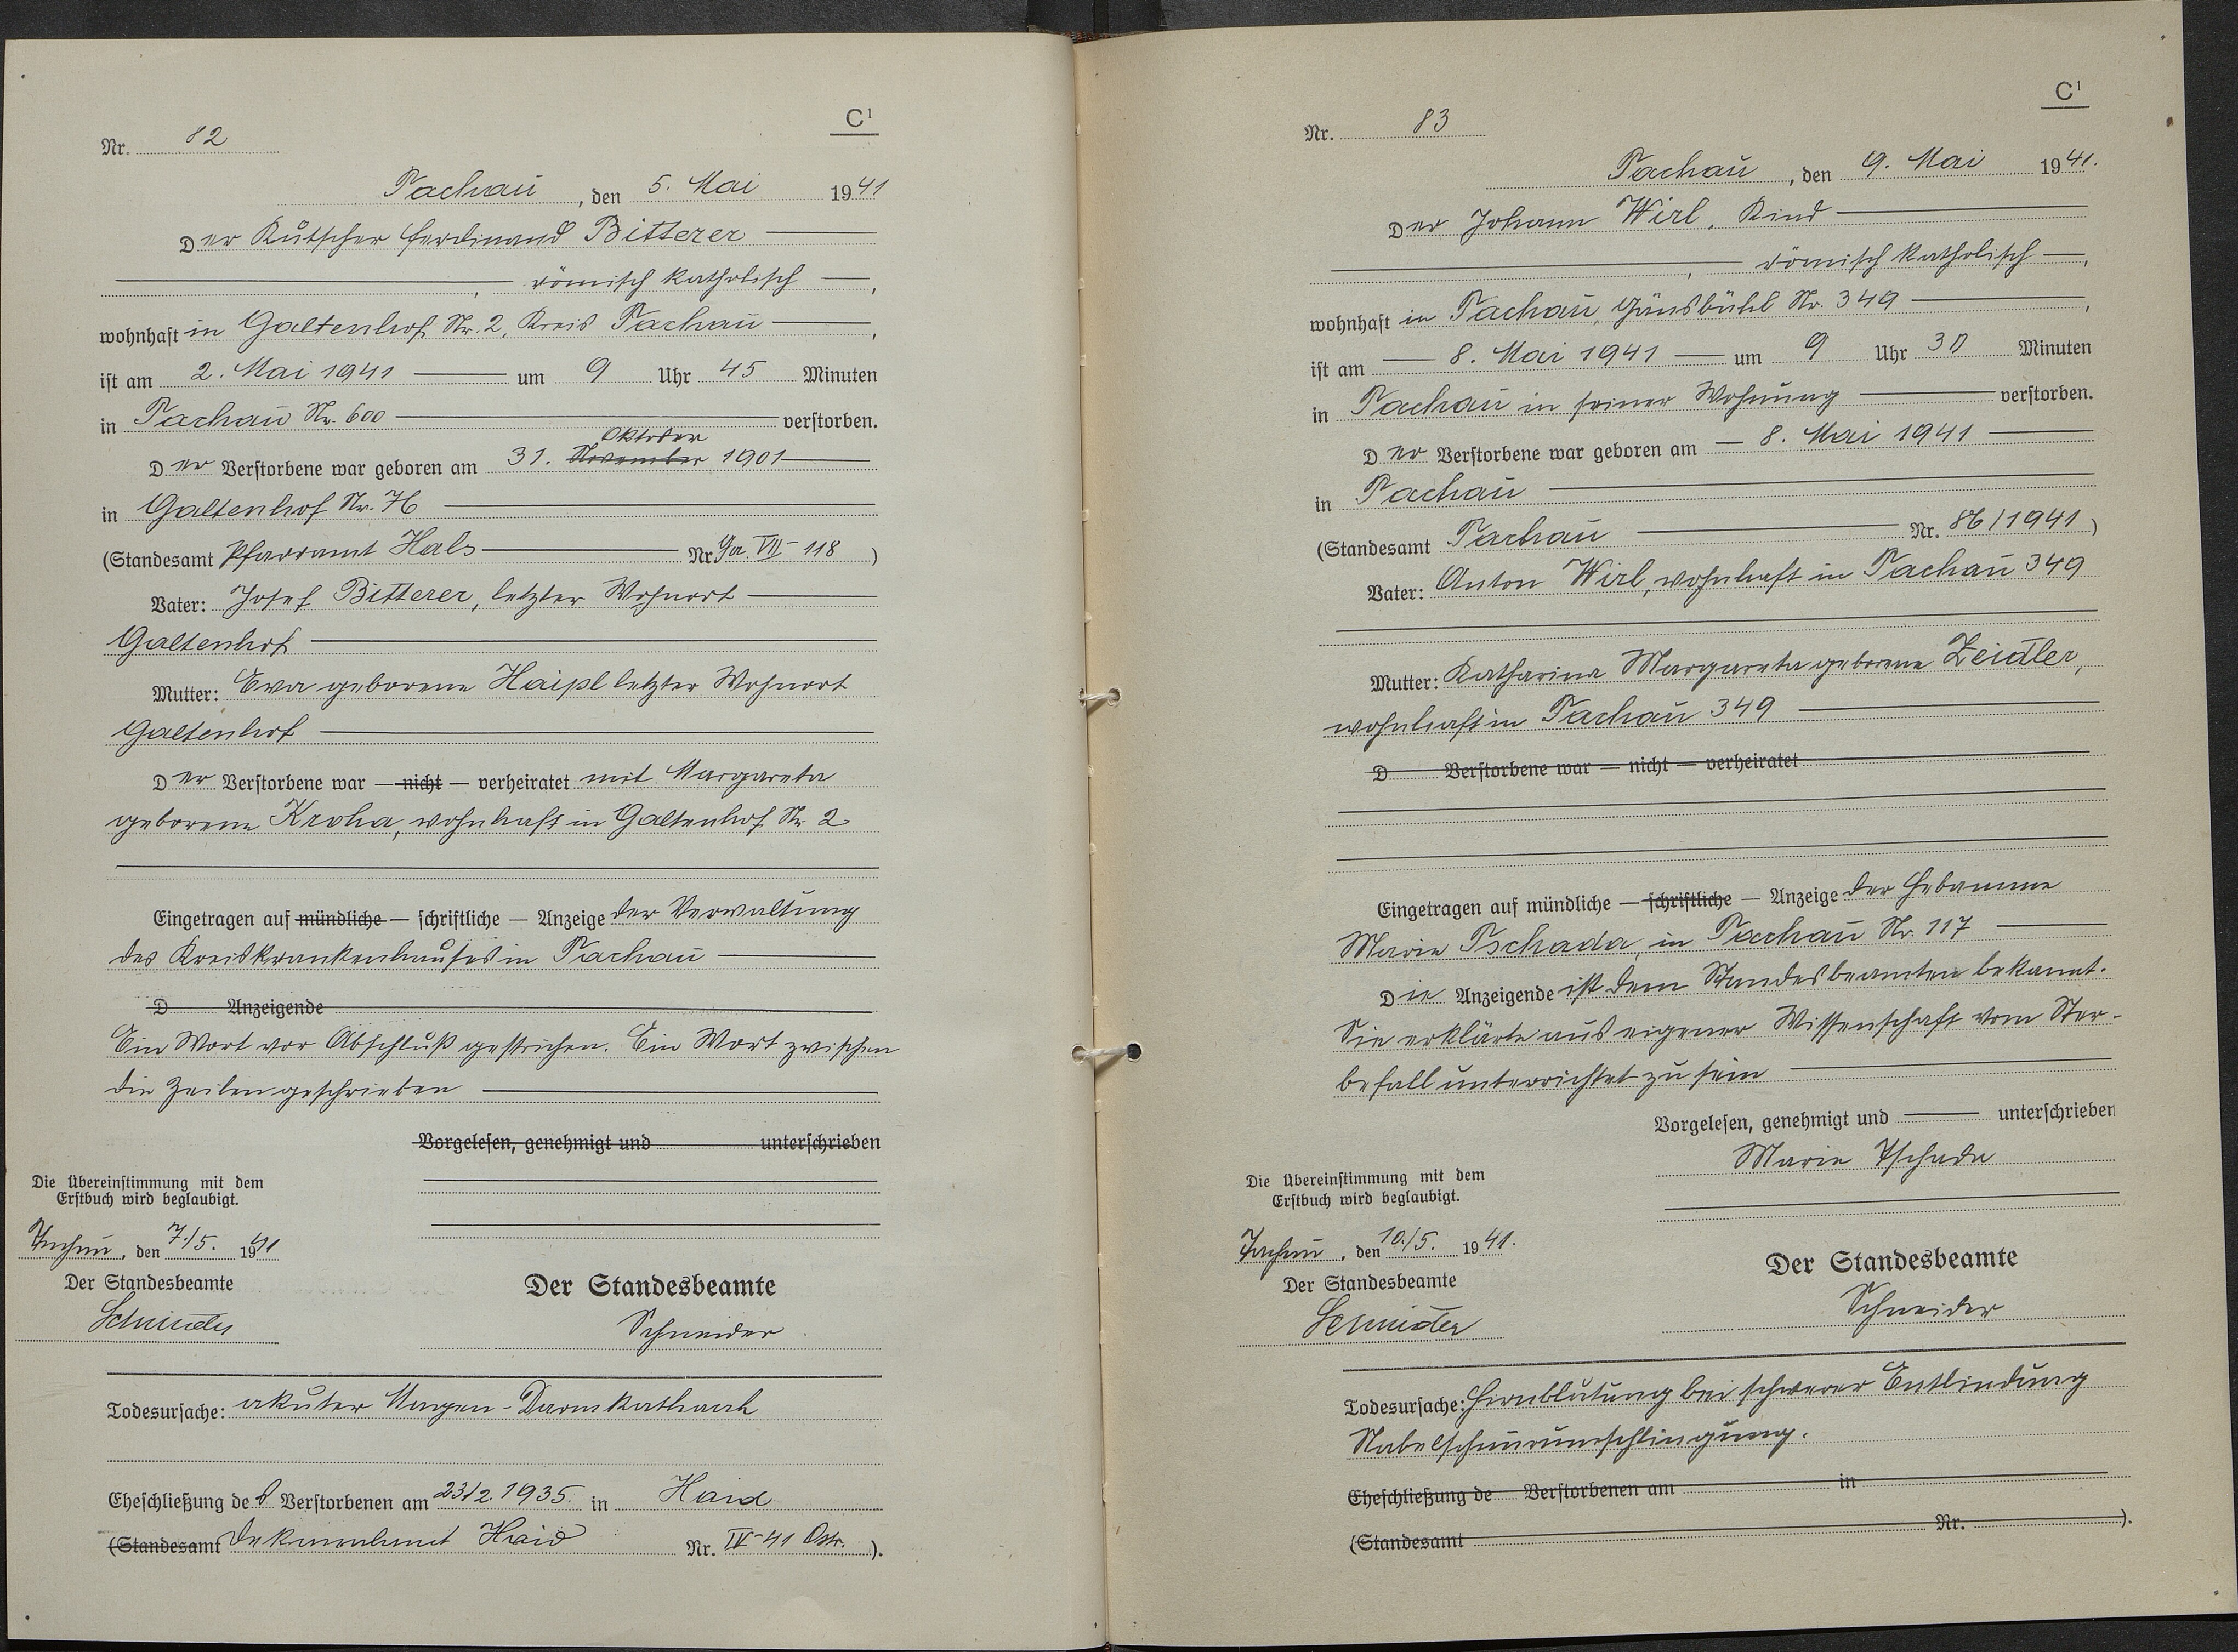 C¹
Nr. 82
Tachau, den 5. Mai 1941
Der Kutscher Ferdinand Bitterer
, römisch katholisch ,
wohnhaft in Galtenhof Nr. 2, Kreis Tachau ,
ist am 2. Mai 1941 um 9 Uhr 45 Minuten
in Tachau Nr. 600 verstorben.
Oktober
Der Verstorbene war geboren am 31. November 1901
in Galtenhof Nr. 76
(Standesamt Pfarramt Hals Nr. Ga. VII - 118 )
Vater: Josef Bitterer, letzter Wohnort
Galtenhof
Mutter: Eva geborene Haipl letzter Wohnort
Galtenhof
Der Verstorbene war — nicht — verheiratet mit Margareta
geborene Kroha, wohnhaft in Galtenhof Nr. 2
Eingetragen auf mündliche — schriftliche — Anzeige der Verwaltung
des Kreiskrankenhauses in Tachau
D Anzeigende
Ein Wort vor Abschluß gestrichen. Ein Wort zwischen
die Zeilen geschrieben
Vorgelesen, genehmigt und unterschrieben
Die Übereinstimmung mit dem
Erstbuch wird beglaubigt.
Tachau, den 7./5. 1941
Der Standesbeamte
Schneider
Der Standesbeamte
Schneider
Todesursache: akuter Magen-Darmkatharrh
Eheschließung des Verstorbenen am 23/2. 1935. in Haid
(Standesamt Dekanalamt Haid Nr. IV - 41 ).
C¹
Nr. 83
Tachau, den 9. Mai 1941.
Der Johann Wirl, Kind
, römisch katholisch ,
wohnhaft in Tachau, Gänsbühl Nr. 349 ,
ist am 8. Mai 1941 um 9 Uhr 30 Minuten
in Tachau in seiner Wohnung verstorben.
Der Verstorbene war geboren am 8. Mai 1941
in Tachau
(Standesamt Tachau Nr. 86/1941 )
Vater: Anton Wirl, wohnhaft in Tachau 349
Mutter: Katharina Margareta geborene Zeidler,
wohnhaft in Tachau 349
D Verstorbene war — nicht — verheiratet
Eingetragen auf mündliche — schriftliche — Anzeige der Hebamme
Marie Tschada, in Tachau Nr. 117
Die Anzeigende ist dem Standesbeamten bekannt.
Sie erklärte aus eigener Wissenschaft vom Ster-
befall unterrichtet zu sein
Vorgelesen, genehmigt und unterschrieben
Marie Tschada
Die Übereinstimmung mit dem
Erstbuch wird beglaubigt.
Tachau, den 10./5. 1941.
Der Standesbeamte
Schneider
Der Standesbeamte
Schneider
Todesursache: Hirnblutung bei schwerer Entbindung
Nabelschnurumschlingung.
Eheschließung de Verstorbenen am in
(Standesamt Nr. ).